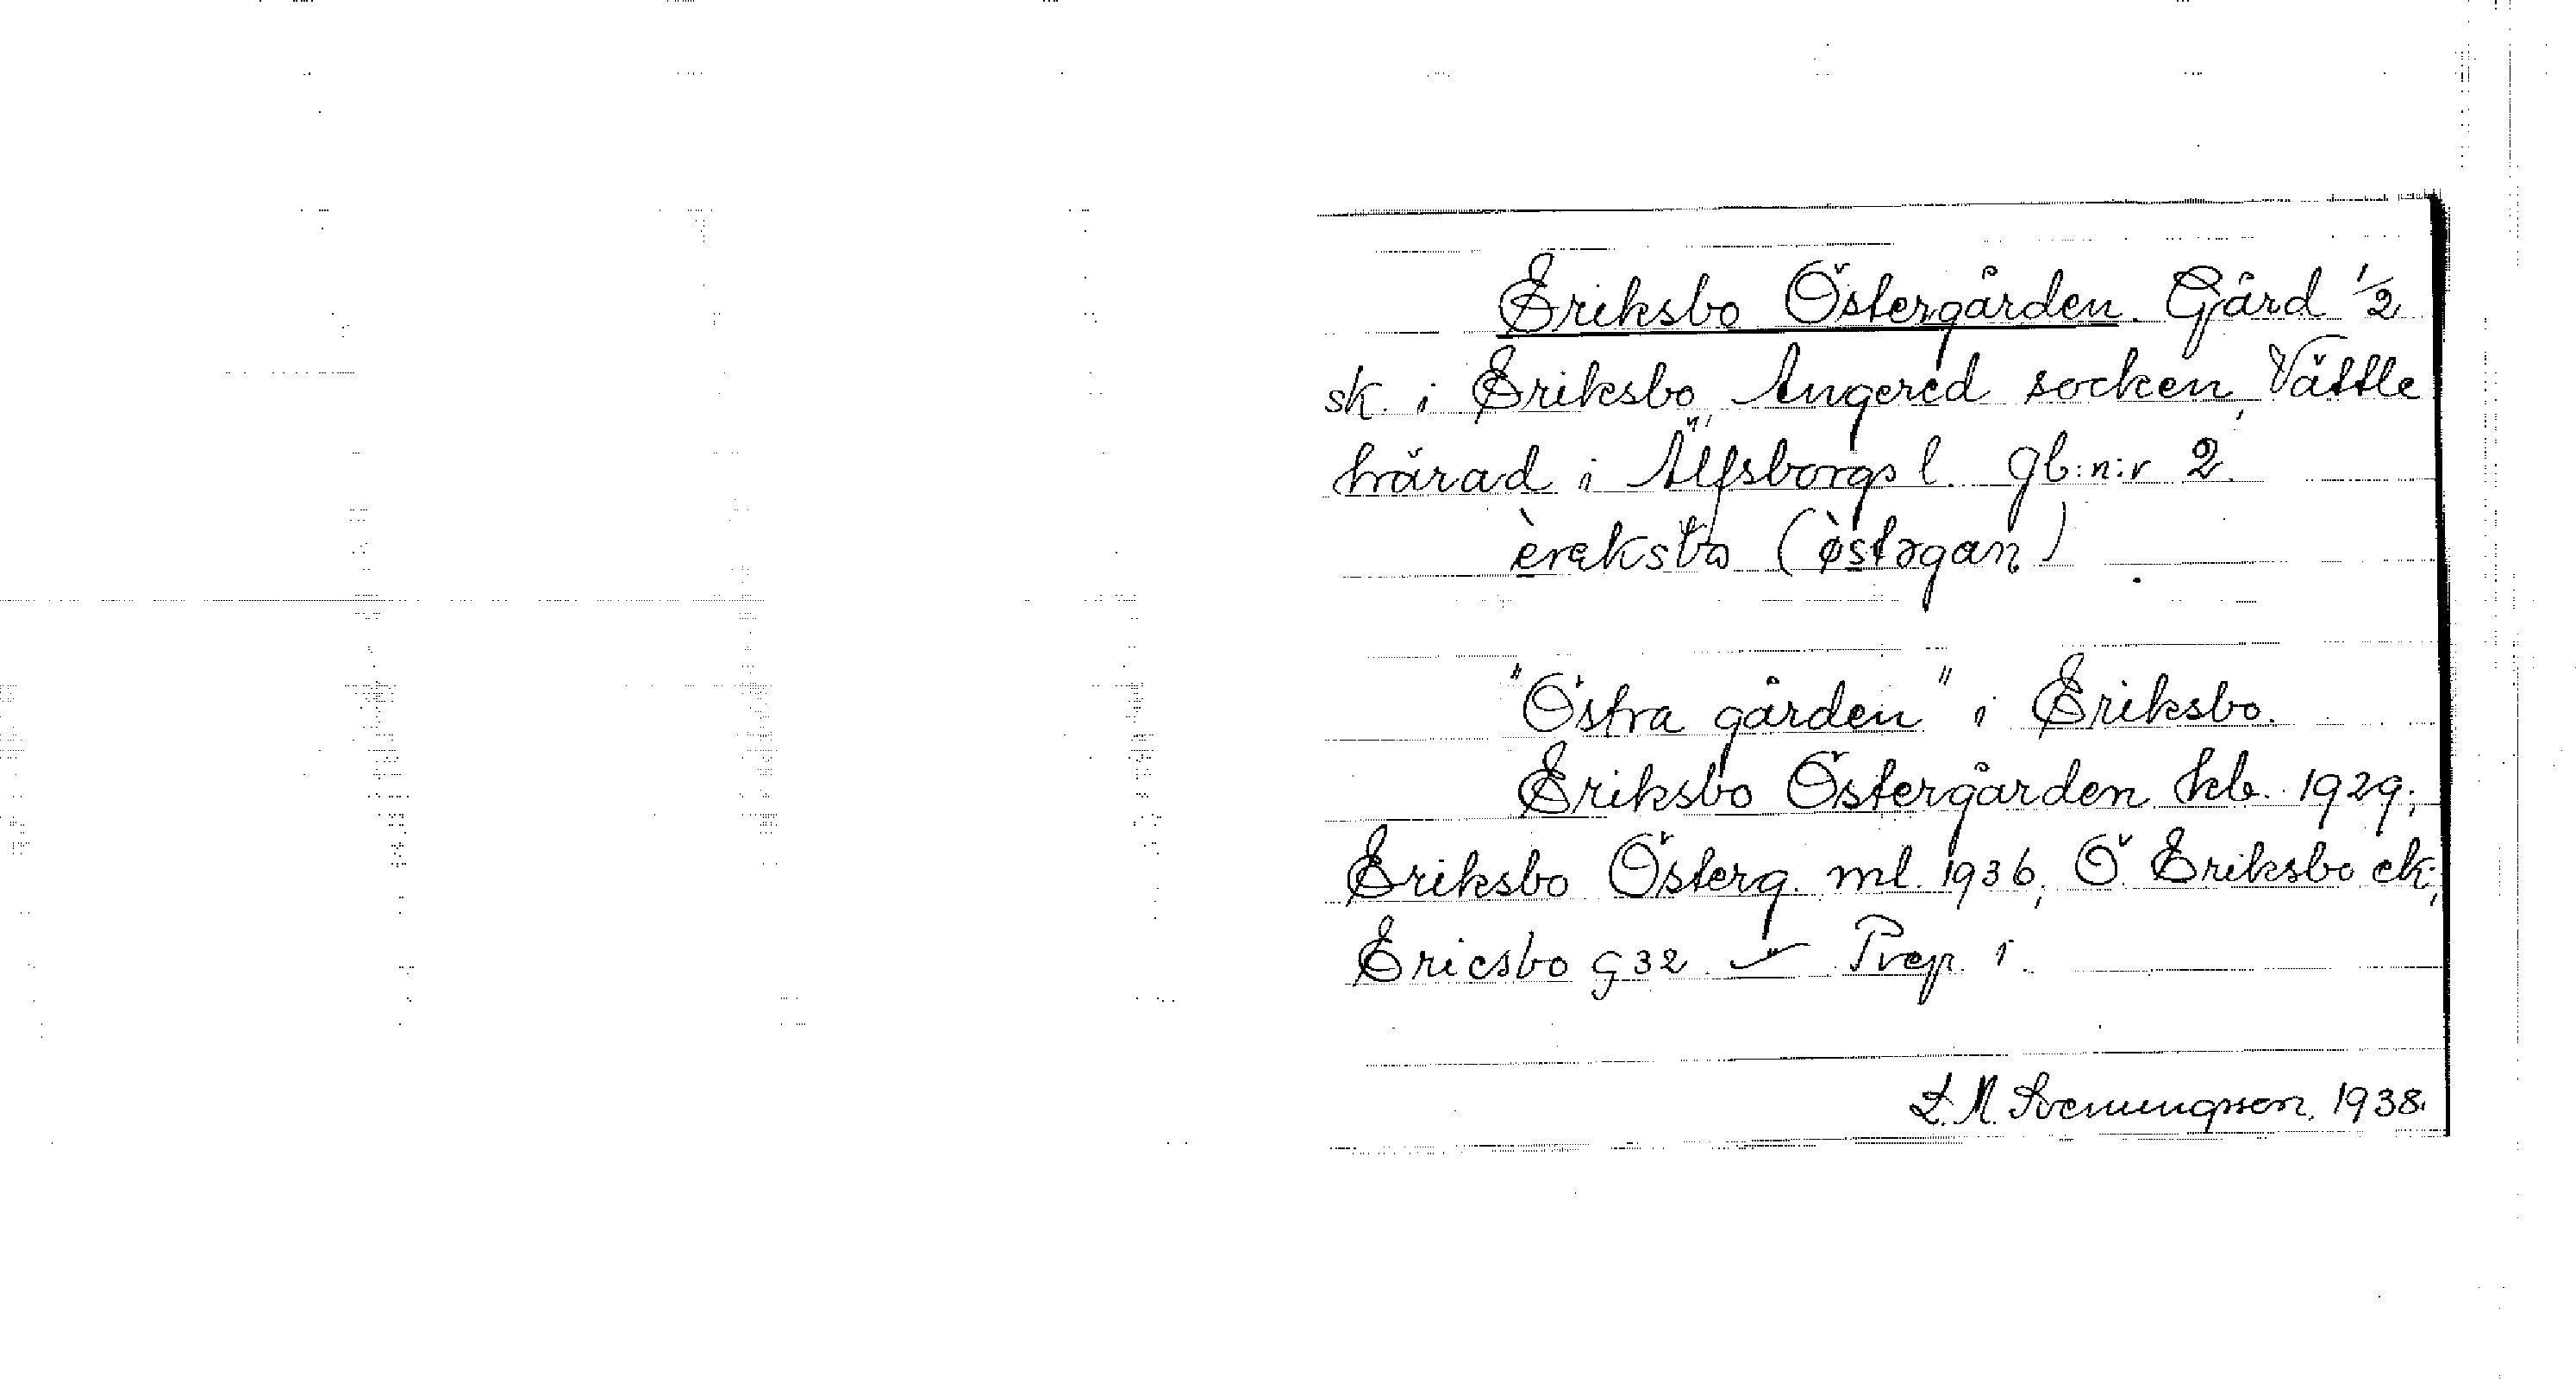 Eriksbo Östergården. Gård 1/2
sk. i Eriksbo, Angered socken, Vättle
härad i Älfsborgs l. gb:n:r 2.
èreksbo (òstəgan)
"Östra gården" i Eriksbo.
Eriksbo Östergården kb. 1929;
Eriksbo Österg. ml. 1936; Ö. Eriksbo ek;
Ericsbo G32. — Prep. i.
1938.